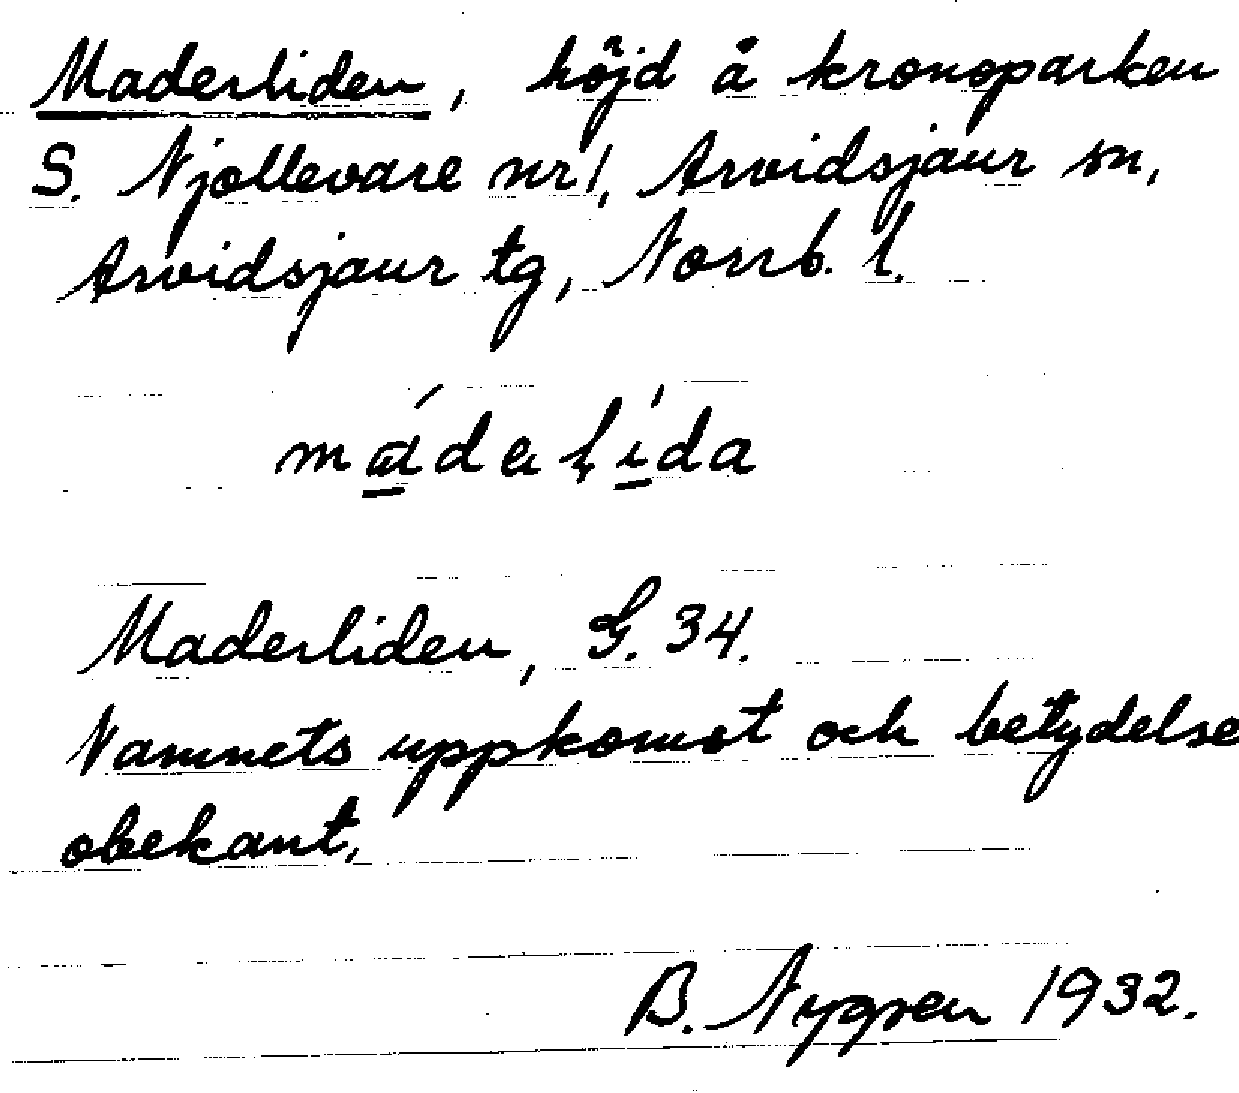 Maderliden, höjd å kronoparken
S. Njollevare nr 1, Arvidsjaur sn,
Arvidsjaur tg, Norrb. l.
Maderliden, G. 34.
Namnets uppkomst och betydelse
obekant.
B. Nygren 1932.